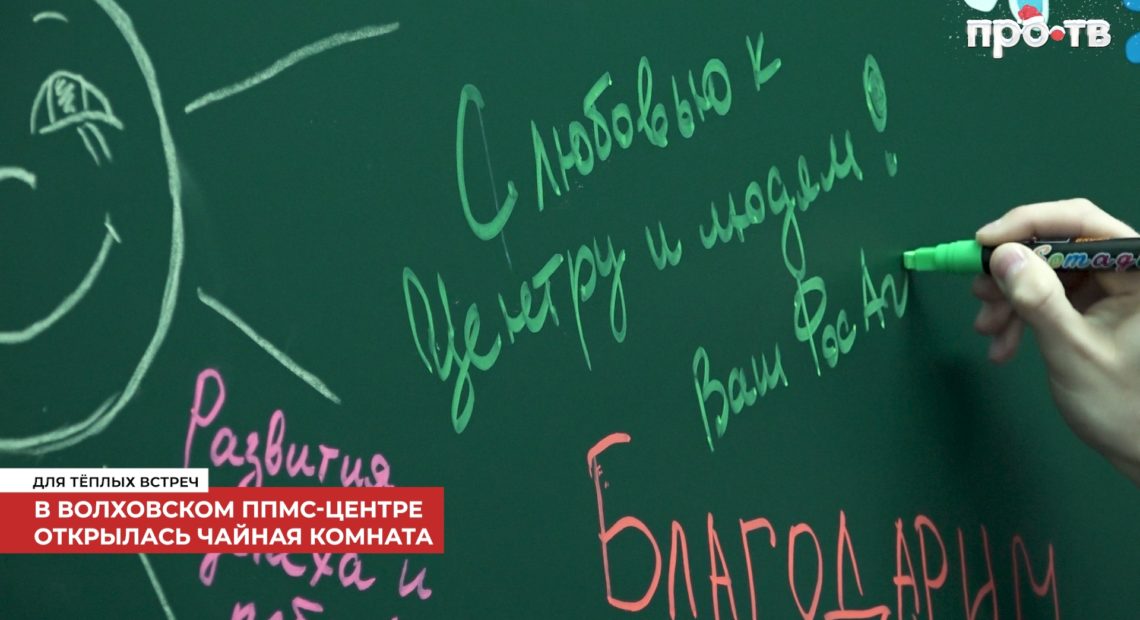 ПРО ТВ
С любовью к
Центру и людям!
Ваш ФосАг
Развития
БЛАГОДАРИМ
ДЛЯ ТЁПЛЫХ ВСТРЕЧ
В ВОЛХОВСКОМ ППМС-ЦЕНТРЕ
ОТКРЫЛАСЬ ЧАЙНАЯ КОМНАТА
и